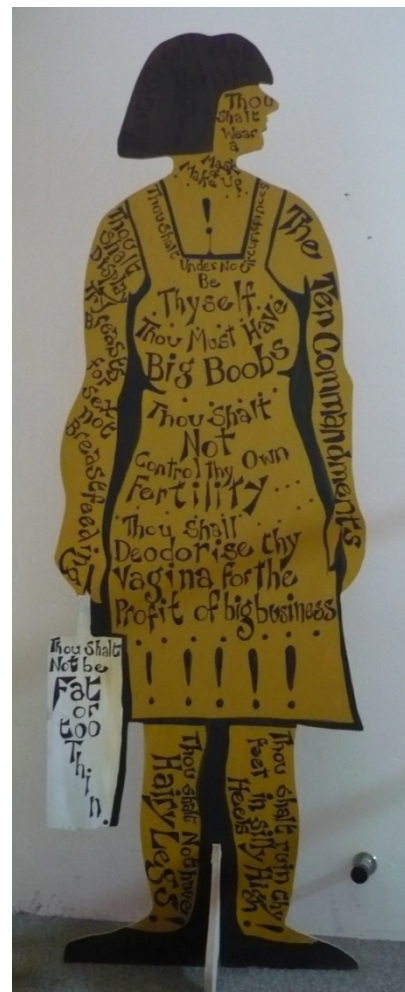 Thou
Shalt
Wear
a
Mask
of
Make Up
!
The Ten Commandments
Thou Shalt
Under No
Circumstances
Be
Thyself.
Thou Must Have
Big Boobs
Thou Shalt
Display
Thy Breasts
for sex
not
Breastfeeding!
Thou Shalt
Not
Control Thy Own
Fertility
Thou Shall
Deodorise thy
Vagina for the
Profit of big business
!!!!!
Thou Shalt
Not be
Fat
or
too
Thin.
Thou shalt Not have
Hairy Legs!
Thou shalt ruin thy
feet in silly High
Heels!